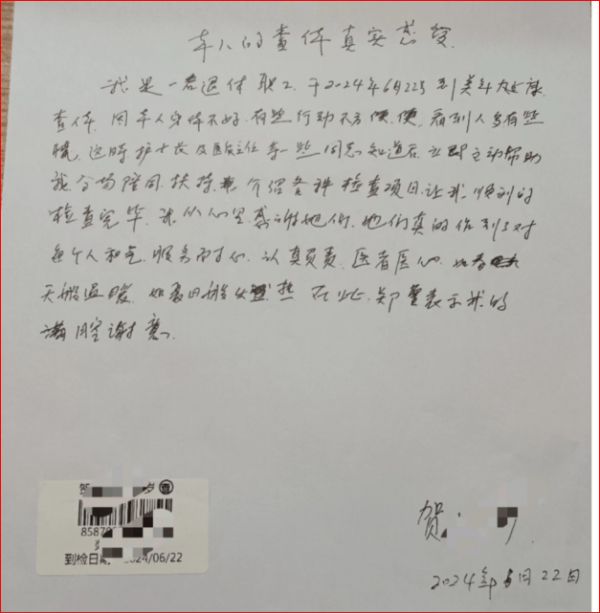 本人的查体真实感受
我是一名退休职工,于2024年6月22号到美年大健康
查体,因本人身体不好,有些行动不方便,看到人多有些
慌,这时护士长及医主任李一些同志知道后,立即主动帮助
我全场陪同,扶持,介绍各种检查项目,让我顺利的
检查完毕,我从心里感谢她们,她们真的做到了对
每个人和气,服务耐心,认真负责,医者仁心,
天般温暖,如夏日般火热,在此,郑重表示我的
满腔谢意。
贺
2024年6月22日
贺 岁 查
8587
到检日期 2024/06/22